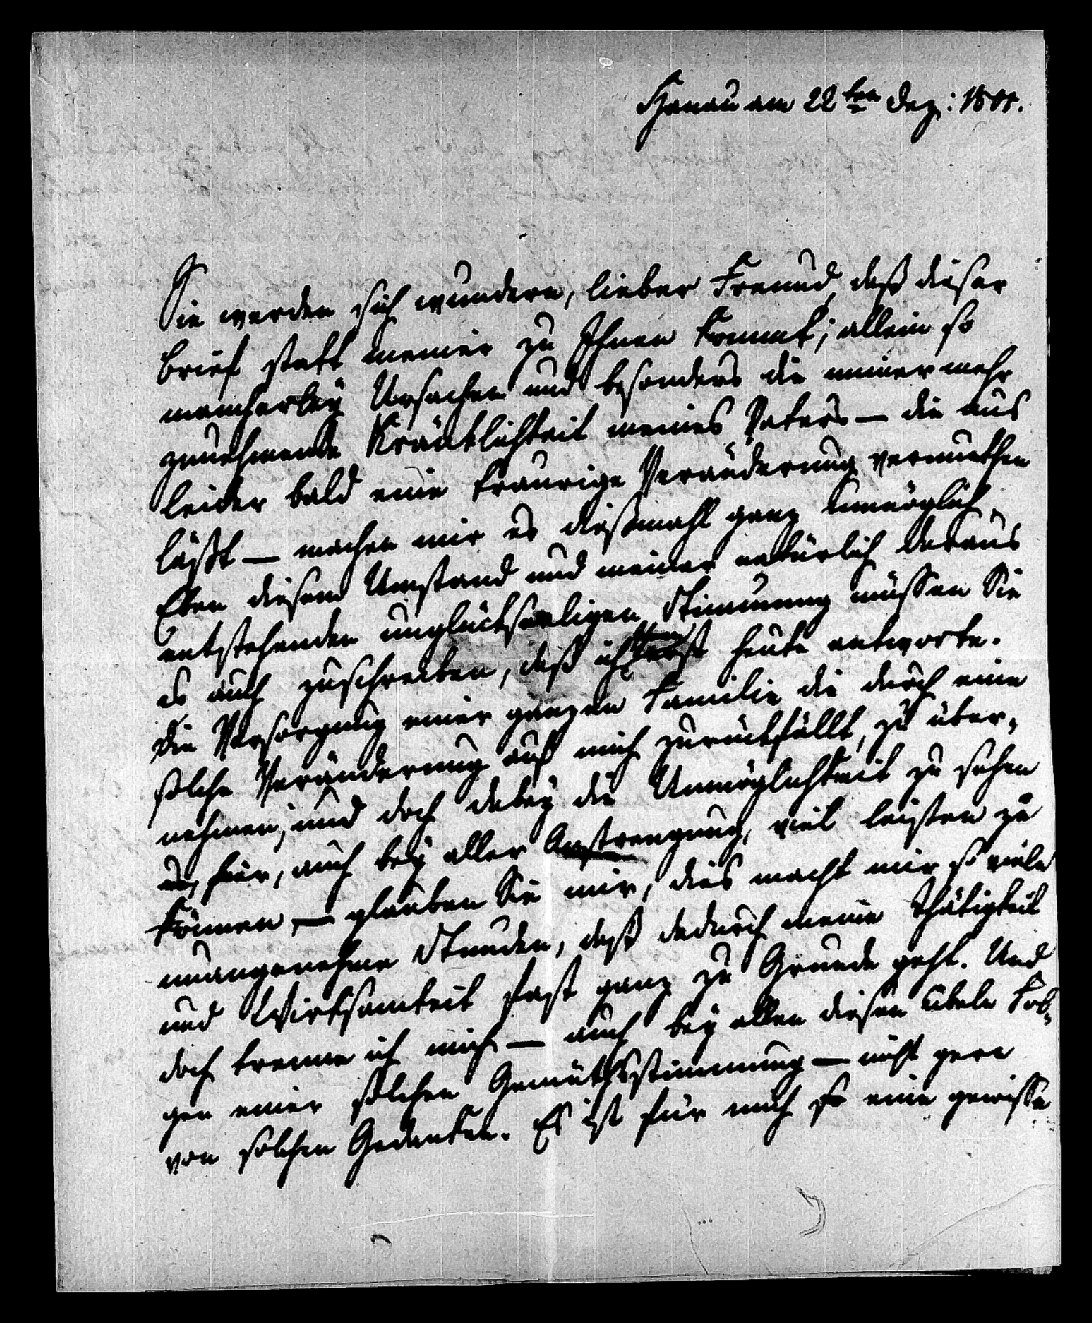 Hanau am 22ten Dez: 1801.
Sie werden sich wundern, lieber Freund, daß dieser
Brief statt meiner zu Ihnen kommt; allein so
mancherley Ursachen und besonders die immermehr
zunehmende Kränklichkeit meines Vaters — die uns
leider bald eine traurige Veränderung vermuthen
läßt — machen mir es diesmahl ganz unmöglich.
Eben diesem Umstand und meiner natürlich daraus
entstehenden unglückseeligen Stimmung müssen Sie
es auch zuschreiben, daß ich erst heute antworte.
Die Versorgung einer ganzen Familie, die durch eine
solche Veränderung auf mich zurückfällt, zu über-
nehmen, und doch dabey die Unmöglichkeit zu sehen
für, auch bey aller Anstrengung, viel leisten zu
können, — glauben Sie mir, dies macht mir so viele
unangenehme Stunden, daß dadurch meine Thätigkeit
und Wirksamkeit fast ganz zu Grunde geht. Und
doch trenne ich mich — auch bey allen diesen übeln Fol-
gen einer solchen Gemüthsstimmung — nicht gern
von solchen Gedanken. Es ist für mich so eine gewisse